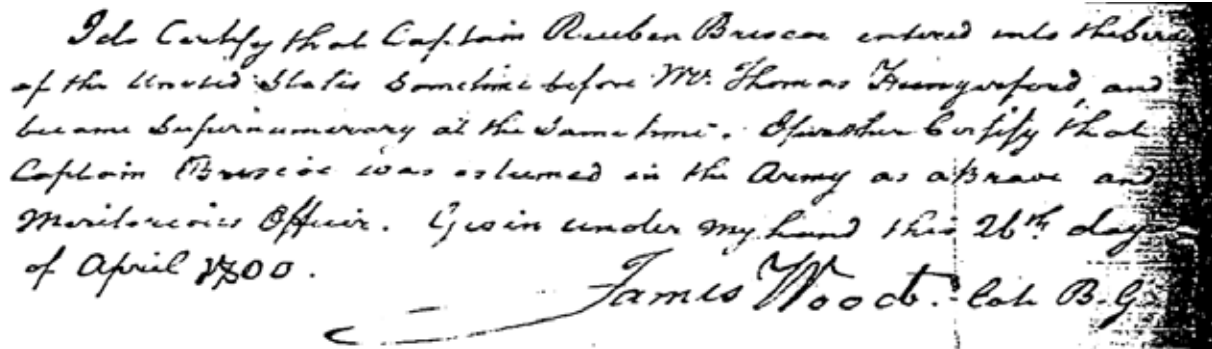 I do Certify that Captain Reuben Briscoe entered into the
of the United States Sometime before Mr. Thomas Hungerford, and
became Supernumerary at the Same time. I further Certify that
Captain Briscoe was esteemed in the Army as a Brave and
Meritorious Officer. Given under my hand this 26th day
of April 1800.
James Wood. late B. G.